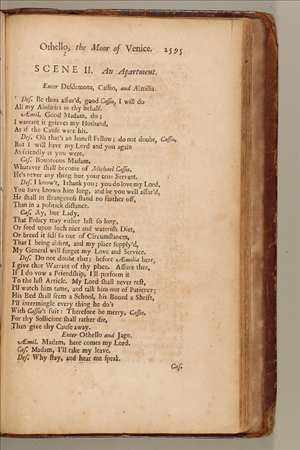 Othello, the Moor of Venice. 2595
SCENE II. An Apartment.
Enter Desdemona, Cassio, and Æmilia.
Des. Be thou assur'd, good Cassio, I will do
All my Abilities in thy behalf.
Æmil. Good Madam, do;
I warrant it grieves my Husband,
As if the Cause were his.
Des. Oh that's an honest Fellow; do not doubt, Cassio,
But I will have my Lord and you again
As friendly as you were.
Cas. Bounteous Madam,
Whatever shall become of Michael Cassio,
He's never any thing but your true Servant.
Des. I know't, I thank you; you do love my Lord,
You have known him long, and be you well assur'd,
He shall in strangeness stand no farther off,
Than in a politick distance.
Cas. Ay, but Lady,
That Policy may either last so long,
Or feed upon such nice and waterish Diet,
Or breed it self so out of Circumstances,
That I being absent, and my place supply'd,
My General will forget my Love and Service.
Des. Do not doubt that; before Æmilia here,
I give thee Warrant of thy place. Assure thee,
If I do vow a Friendship, I'll perform it
To the last Article. My Lord shall never rest,
I'll watch him tame, and talk him out of Patience;
His Bed shall seem a School, his Board a Shrift,
I'll intermingle every thing he do's
With Cassio's suit: Therefore be merry, Cassio,
For thy Sollicitor shall rather die,
Than give thy Cause away.
Enter Othello and Jago.
Æmil. Madam, here comes my Lord.
Cas. Madam, I'll take my leave.
Des. Why stay, and hear me speak.
Cas.